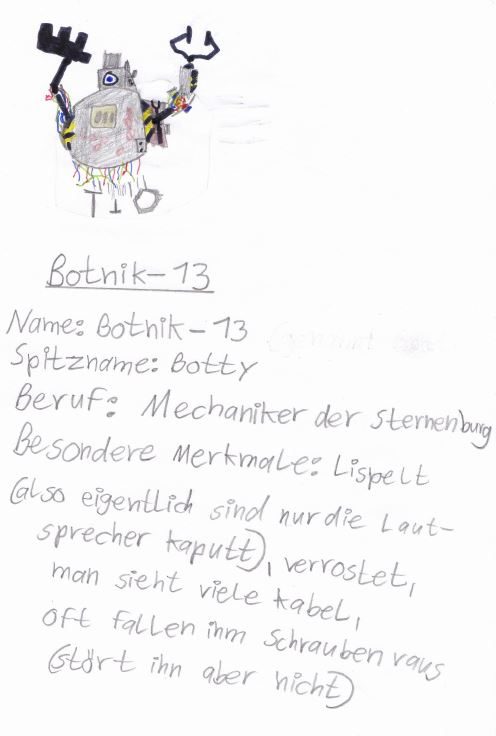 Botnik-13
Name: Botnik-13 (genannt
Spitzname: Botty
Beruf: Mechaniker der Sternenburg
Besondere Merkmale: Lispelt
(also eigentlich sind nur die Laut-
sprecher kaputt), verrostet,
man sieht viele Kabel,
oft fallen ihm Schrauben raus
(stört ihn aber nicht)